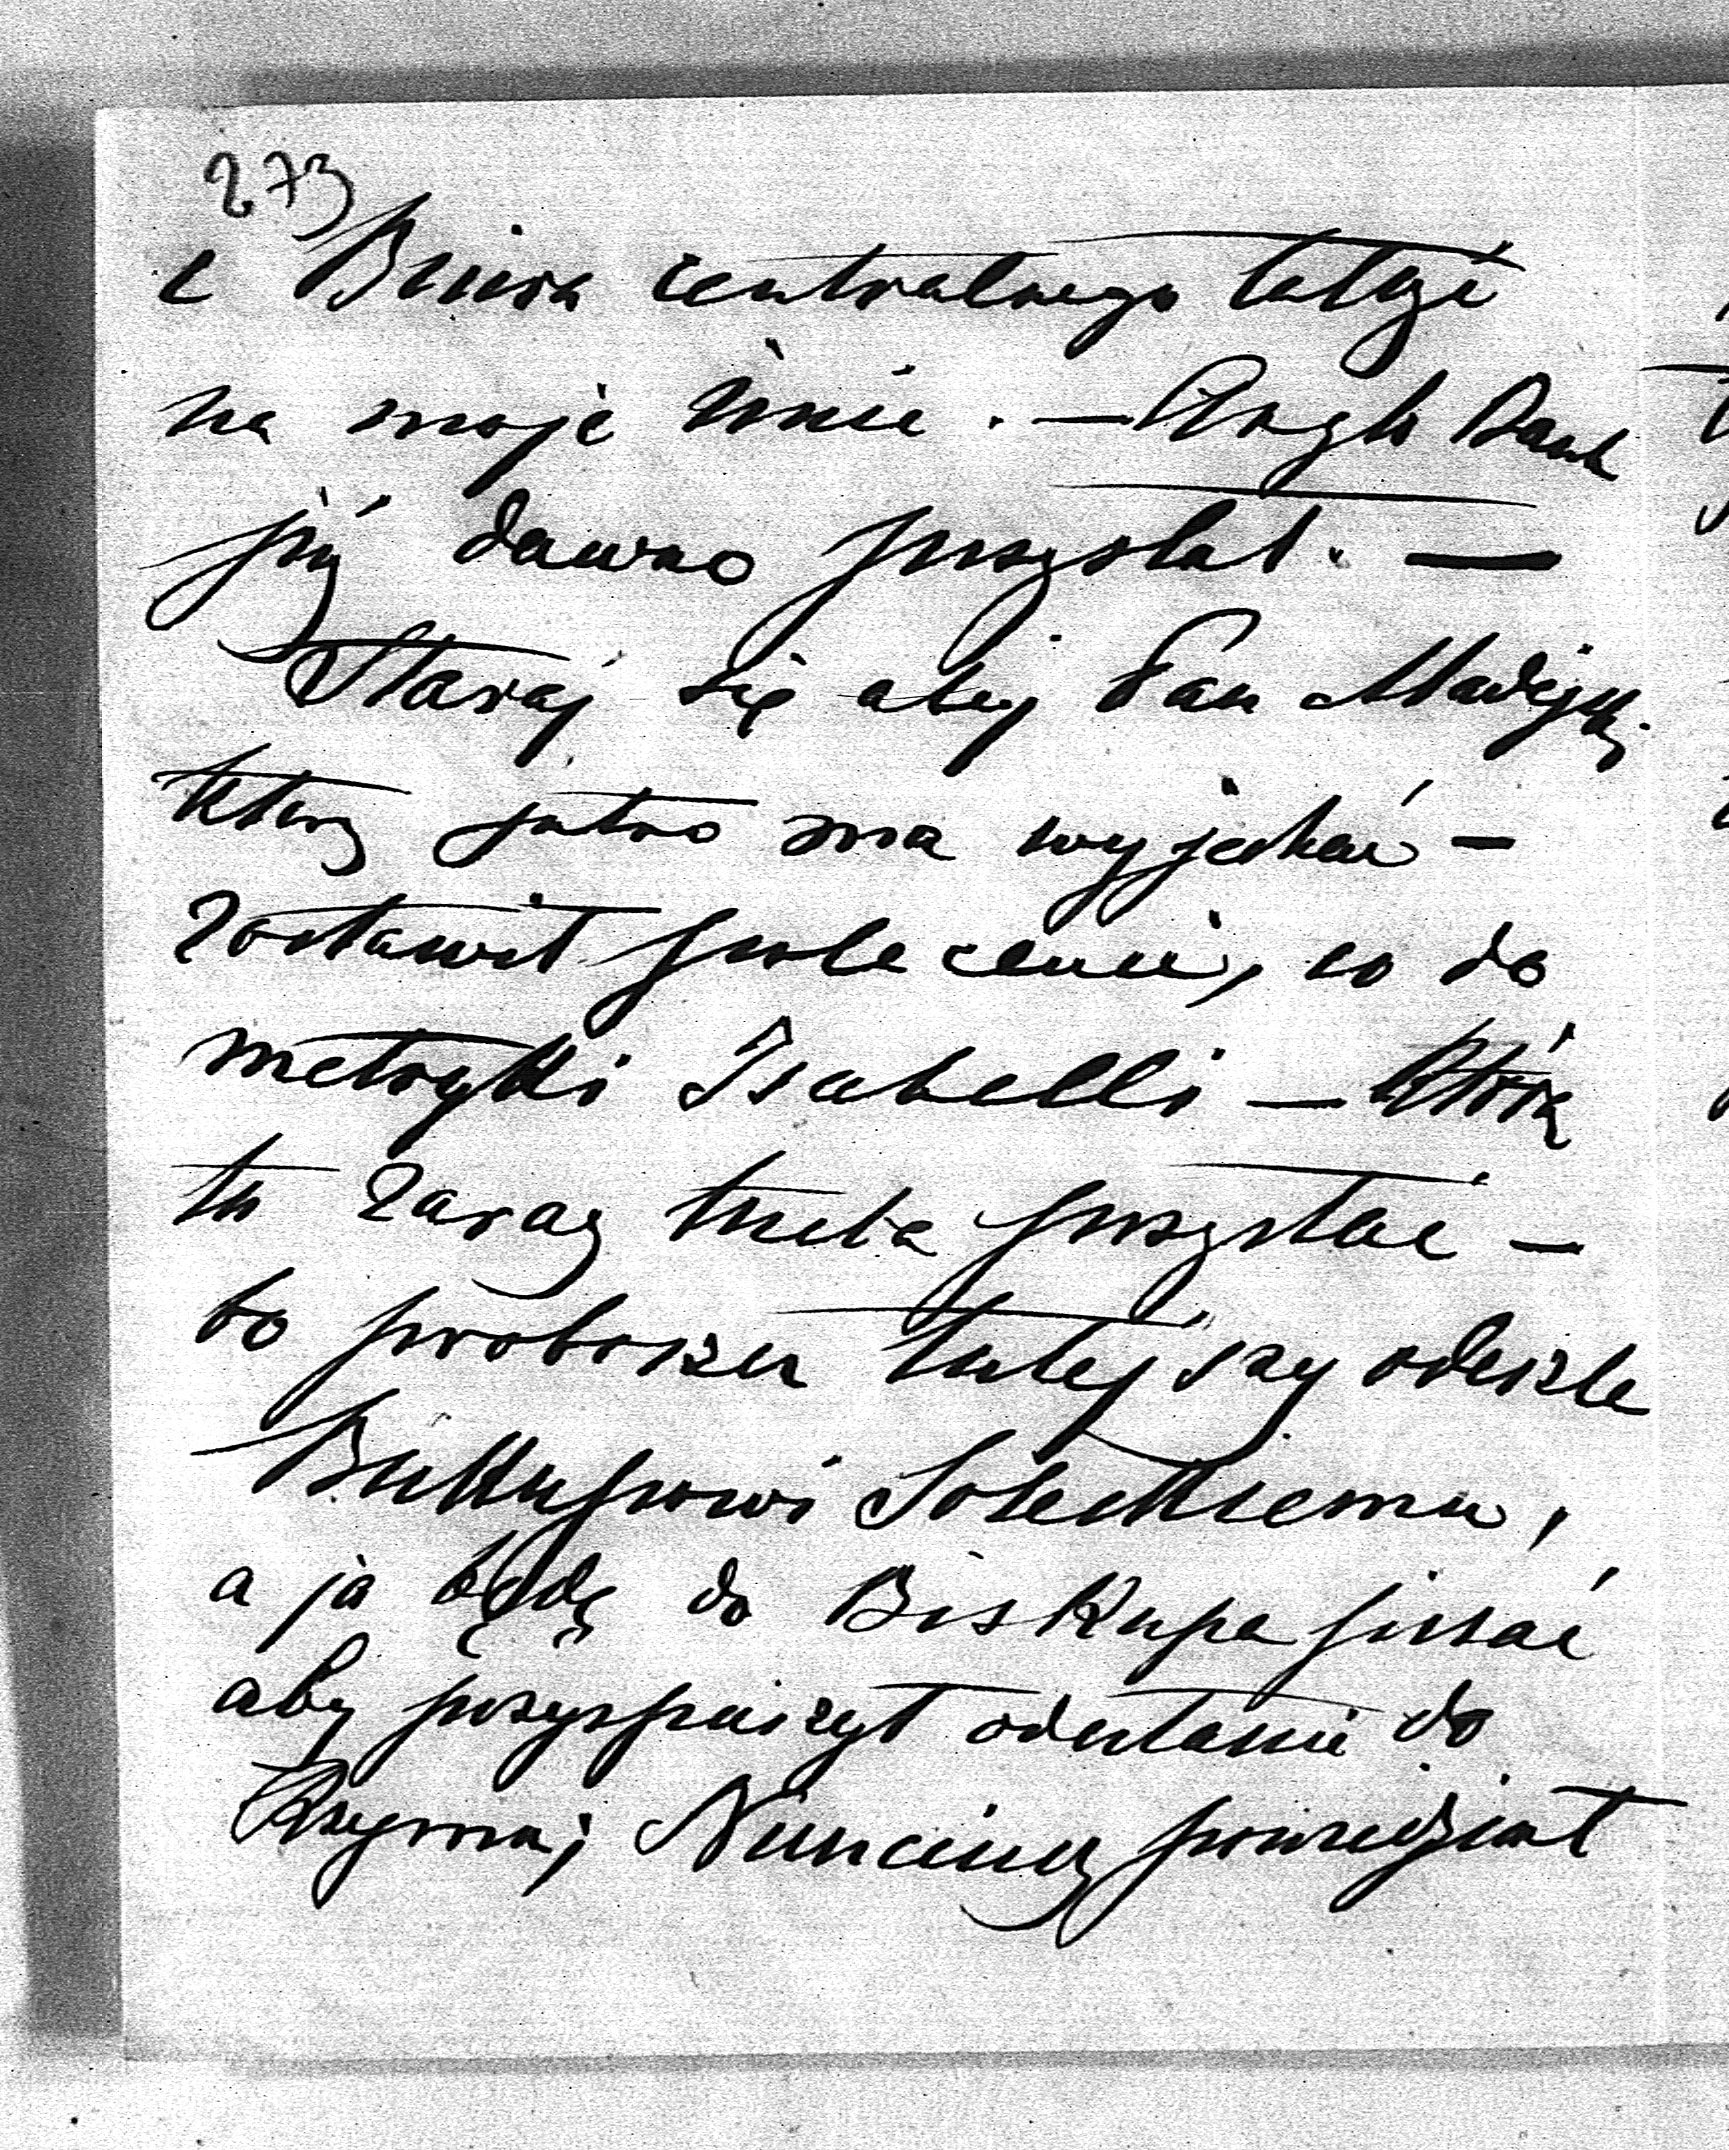 273
i Biura centralnego także
na moje imie. — Anglo Bank
już dawno przysłał. —
Staraj się aby Pan Madejski
który jutro ma wyjechać —
zostawił polecenie, co do
metryki Isabelli — którą
tu zaraz trzeba przysłać —
bo proboszcz tutejszy odeszle
Biskupowi Soleckiemu,
a ja będę do Biskupa pisać
aby przyspieszył odesłanie do
Rzymu; Nunciusz powiedział